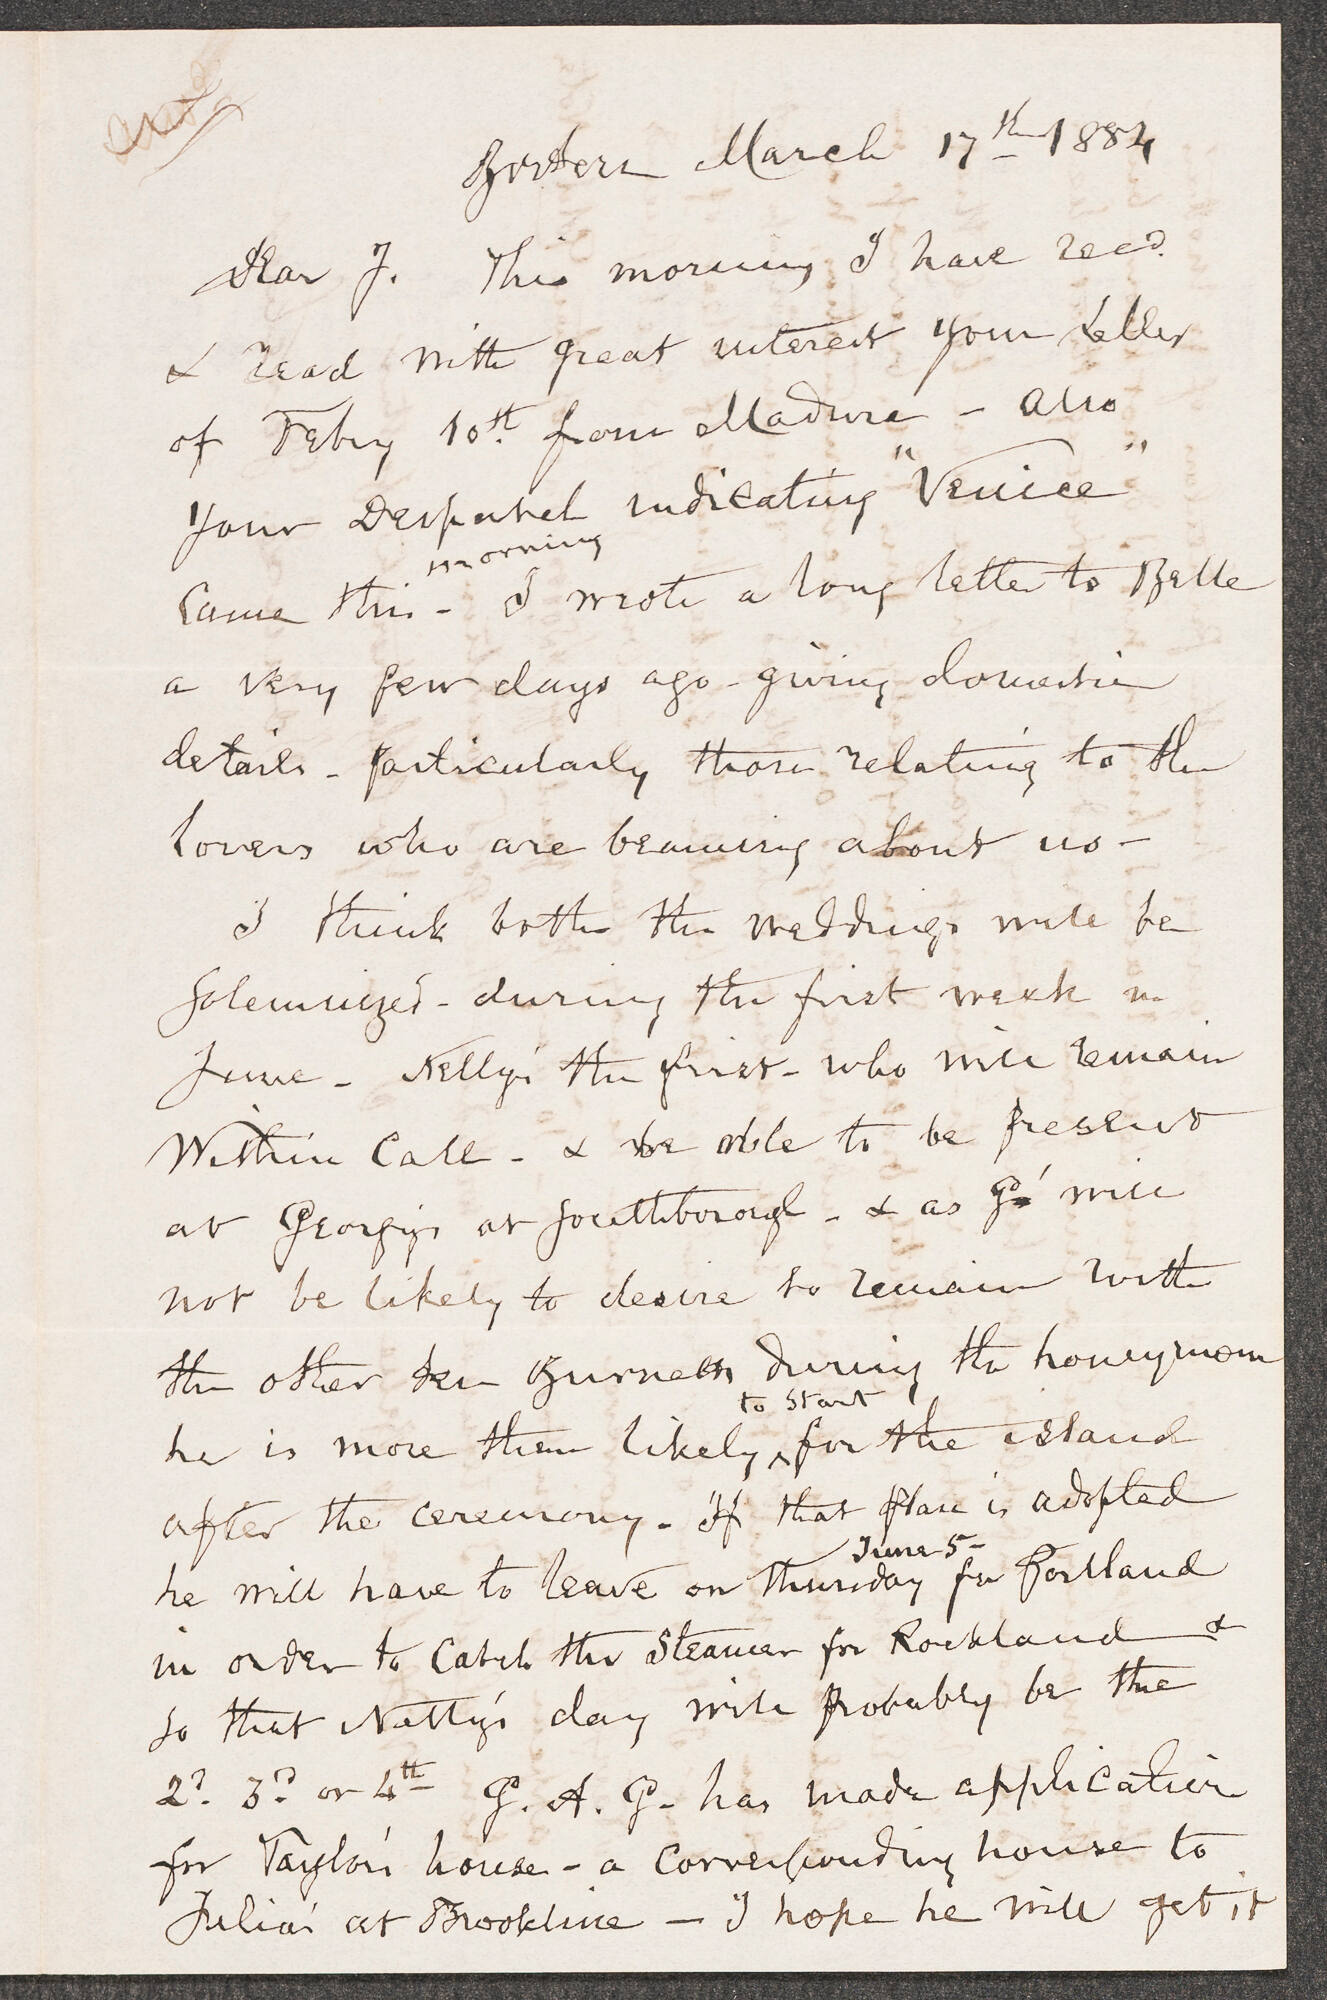 Boston March 17th 1884
Dear J. This morning I have recd.
& read with great interest your letter
of Feby 10th from Madura - also
your Despatch indicating "Venice"
morning
Came this - I wrote a long letter to Belle
a very few days ago - giving domestic
details - particularly those relating to the
lovers who are beaming about us -
I think both the weddings will be
solemnized - during the first week in
June - Nelly's the first - who will remain
Within Call - & be able to be present
at Georgy's at Southborough - & as G' will
not be likely to desire to remain with
the other ten Burnetts during the honeymoon
to start
he is more than likely ^ for the island
after the ceremony - If that plan is adopted
June 5 -
he will have to leave on Thursday for Portland
in order to Catch the Steamer for Rockland &
so that Natty's day will probably be the
2d. 3d. or 4th - G. A. G - has made application
for Taylor's house - a corresponding house to
Julia's at Brookline - I hope he will get it